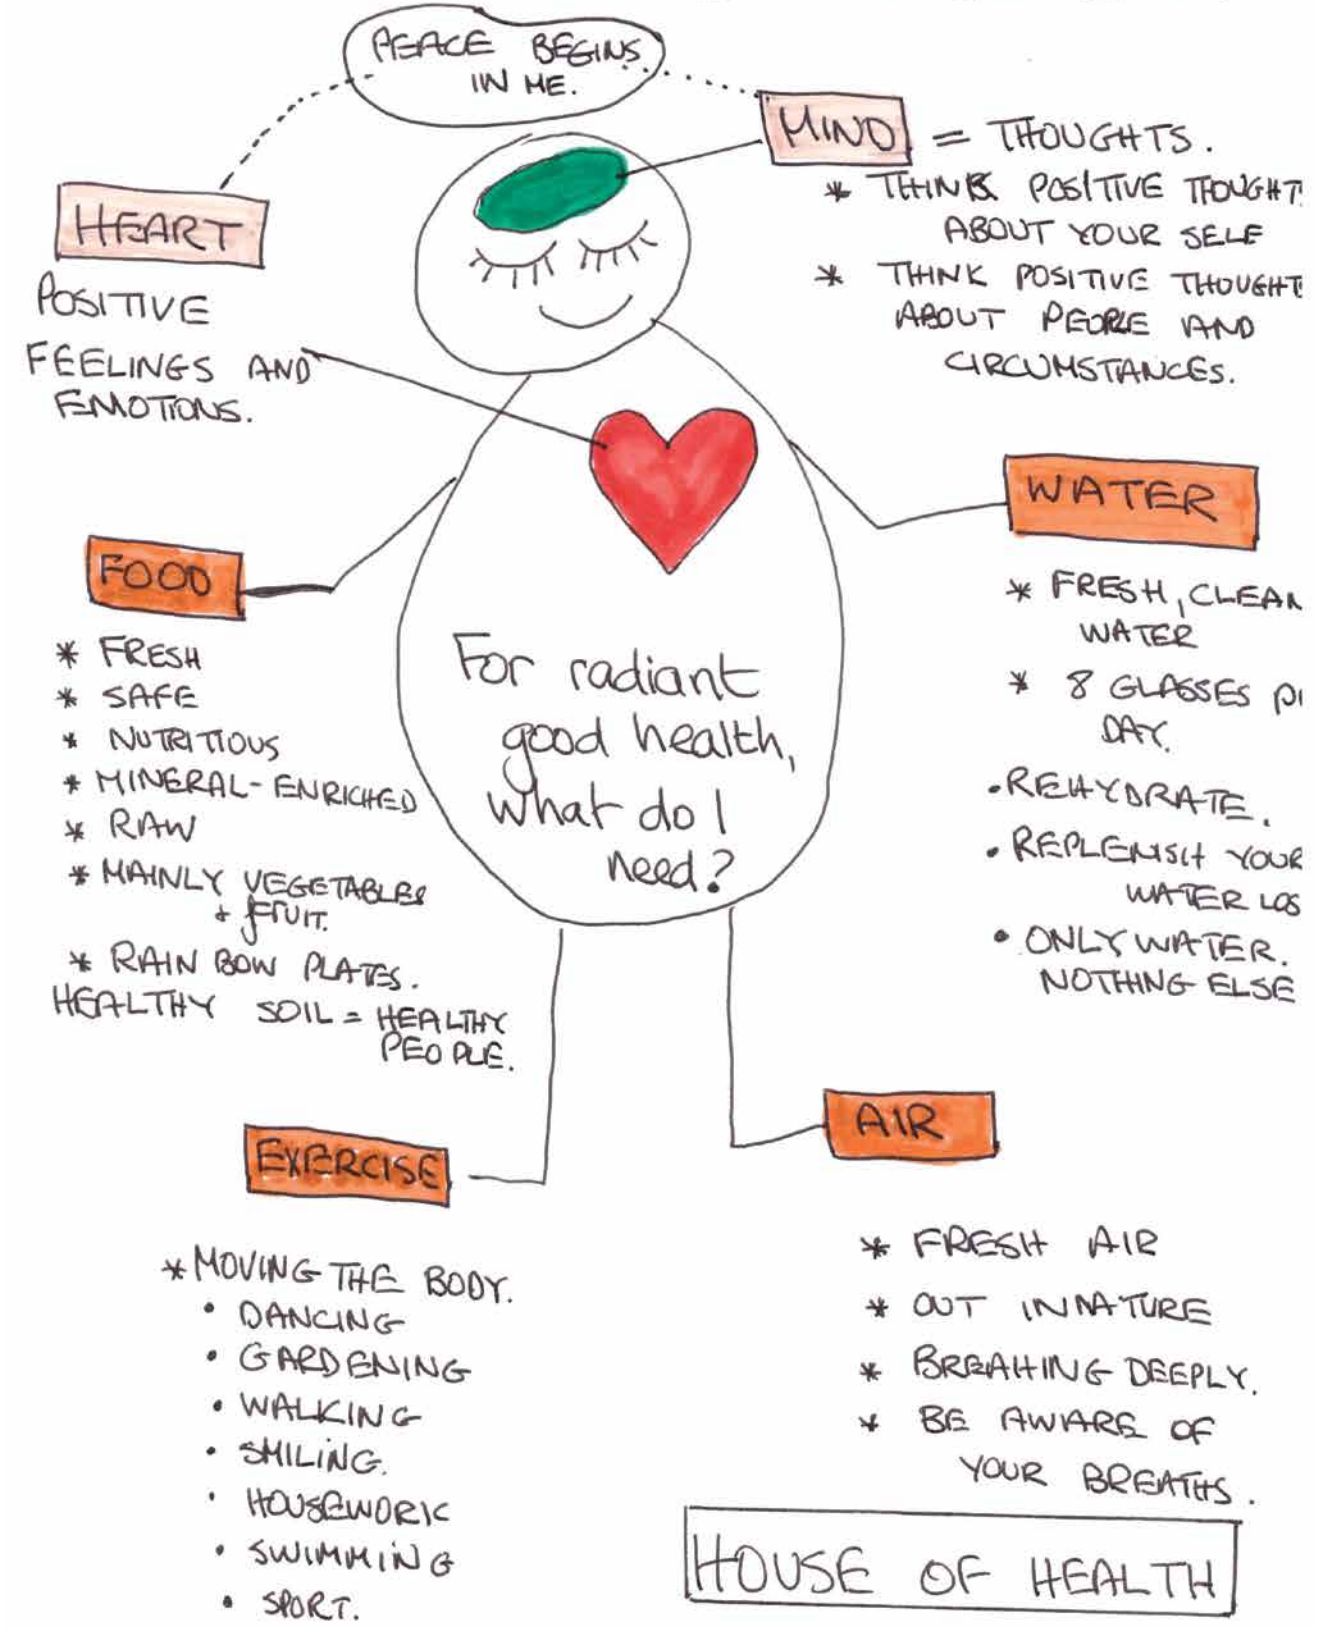 PEACE BEGINS
IN ME.
MIND = THOUGHTS.
* THINK POSITIVE THOUGHT
ABOUT YOUR SELF
* THINK POSITIVE THOUGHT
ABOUT PEOPLE AND
CIRCUMSTANCES.
HEART
POSITIVE
FEELINGS AND
EMOTIONS.
WATER
* FRESH, CLEAN
WATER
* 8 GLASSES
DAY.
• REHYDRATE.
• REPLENISH YOUR
WATER LOS
• ONLY WATER.
NOTHING ELSE
FOOD
* FRESH
* SAFE
* NUTRITIOUS
* MINERAL-ENRICHED
* RAW
* MAINLY VEGETABLES
+ FRUIT.
* RAIN BOW PLATES.
HEALTHY SOIL = HEALTHY
PEOPLE.
For radiant
good health,
what do I
need?
EXERCISE
* MOVING THE BODY.
• DANCING
• GARDENING
• WALKING
• SMILING.
• HOUSEWORK
• SWIMMING
• SPORT.
AIR
* FRESH AIR
* OUT IN NATURE
* BREAHING DEEPLY.
* BE AWARE OF
YOUR BREATHS.
HOUSE OF HEALTH